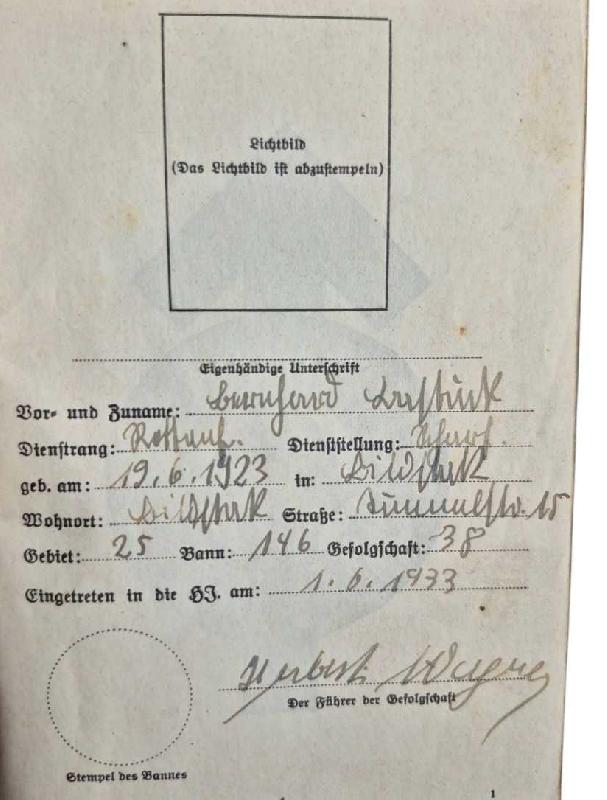 Lichtbild
(Das Lichtbild ist abzustempeln)
Eigenhändige Unterschrift
Vor- und Zuname: Bernhard
Dienstrang: Rottenf. Dienststellung: Scharf.
geb. am: 19.6.1923 in: Bildstock
Wohnort: Bildstock Straße: Tunnelstr. 15
Gebiet: 25 Bann: 146 Gefolgschaft: 38
Eingetreten in die HJ. am: 1.6.1933
Herbert Wagner
Der Führer der Gefolgschaft
Stempel des Bannes
1